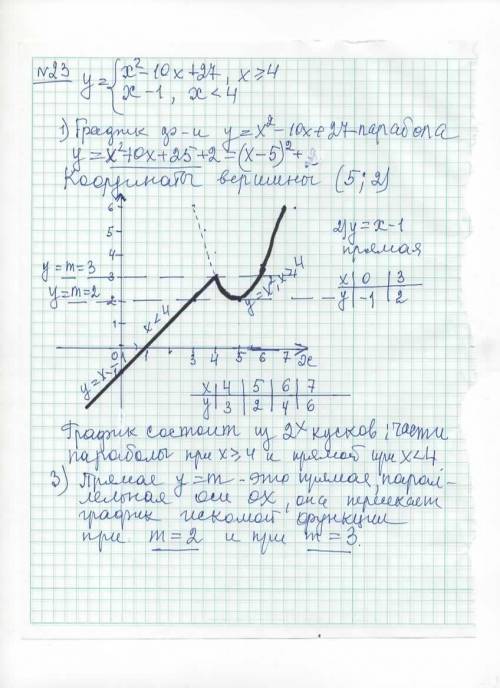 №23 y = { x² - 10x + 27, x ≥ 4
x - 1, x < 4
1) График ф-и y = x² - 10x + 27 - парабола
y = x² - 10x + 25 + 2 = (x - 5)² + 2
Координаты вершины (5; 2)
6
5
4
y = m = 3
3
y = m = 2
2
1
0 1 3 4 5 6 7 x
x < 4
y = x - 1
y = x², x ≥ 4
2) y = x - 1
прямая
x | 0 | 3
y | -1 | 2
x | 4 | 5 | 6 | 7
y | 3 | 2 | 4 | 6
График состоит из 2х кусков: части
параболы при x ≥ 4 и прямой при x < 4
3) Прямая y = m - это прямая, парал-
лельная оси ОХ, она пересекает
график искомой функции
при m = 2 и при m = 3.